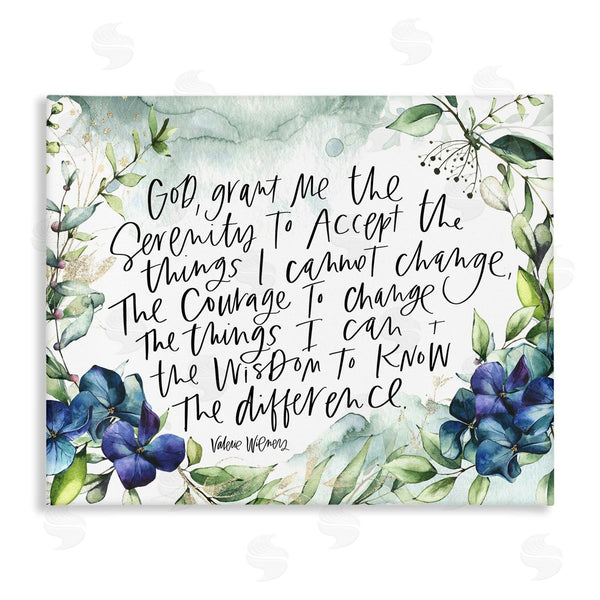 God, grant me the
Serenity To Accept the
things I cannot change,
The Courage To change
The things I can +
the Wisdom to Know
The difference.
Valerie Wieners